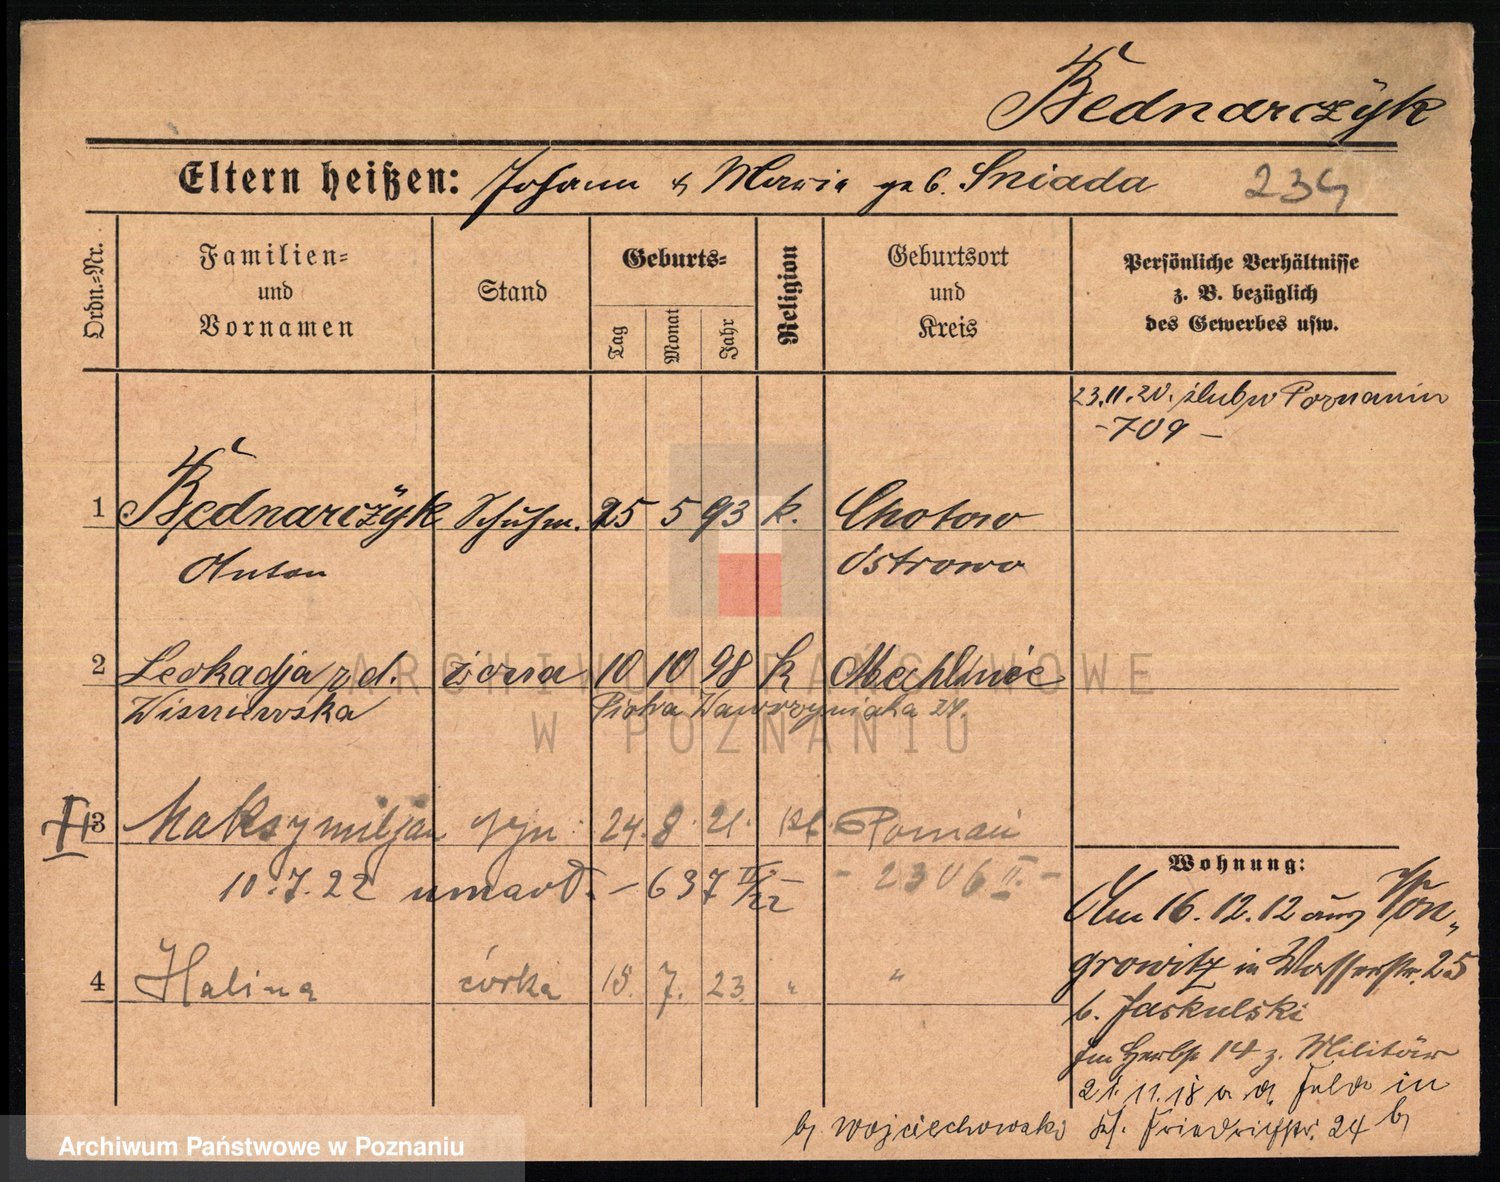 Bednarczyk
Eltern heißen: Johann & Maria geb. Sniada 234
Ordn.-Nr.
Familien- und Vornamen
Stand
Geburts-
Tag
Monat
Jahr
Religion
Geburtsort und Kreis
Persönliche Verhältnisse
z. B. bezüglich
des Gewerbes usw.
23.11.20. ślub w Poznaniu
-709-
1 Bednarczyk Schuhm. 25 5 93 k. Chotow
Anton Ostrowo
2 Leokadja żona 10 10 98 k
Wiśniewska Piotra Wawrzyniaka 24
3 Maksymiljan syn 24. 8. 21. kt. Poznań
10.7.22 - 637 - 2306 II. -
4 Halina córka 18. 7. 23. " "
Wohnung:
Am 16.12.12 aus Won-
growitz in Wasserstr. 25
b. Jaskulski
Im Herbst 14 z. Militär
21.11.18 a. d. Felde in
Kl. Friedrichstr. 24 b/
b/ Wojciechowski
ARCHIWUM PAŃSTWOWE
W POZNANIU
Archiwum Państwowe w Poznaniu